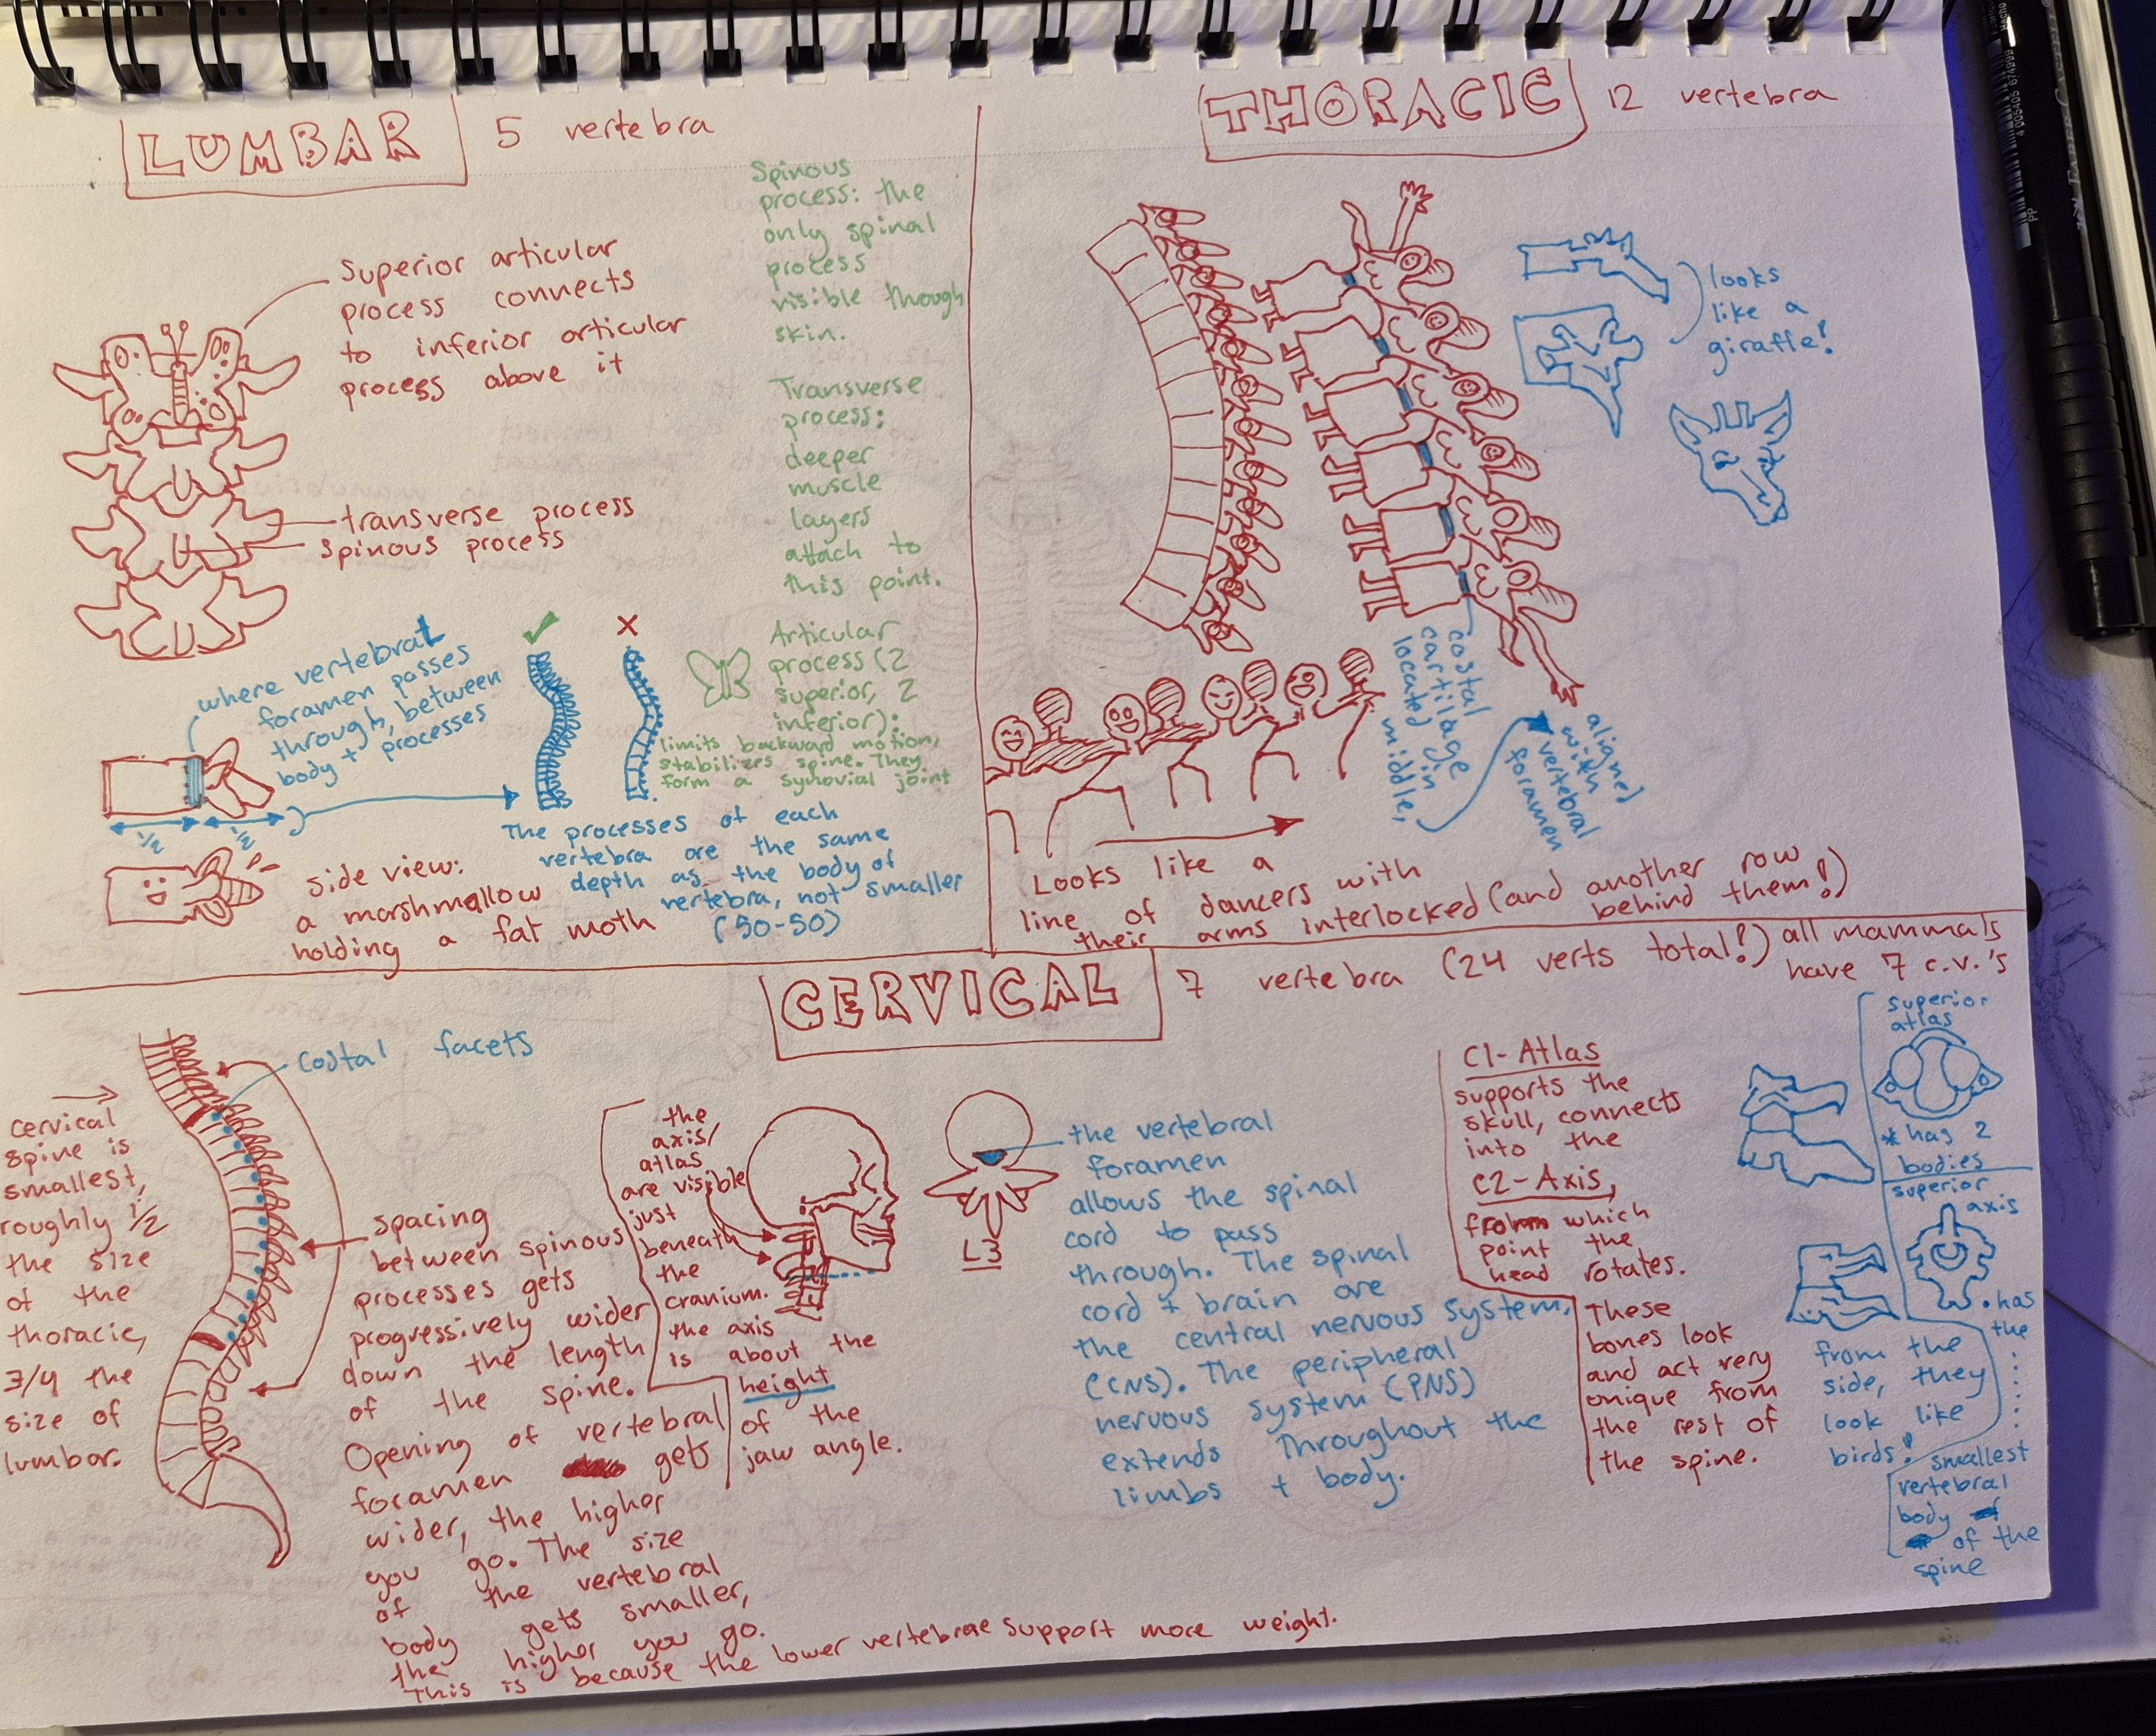 LUMBAR
5 vertebra
Superior articular
process connects
to inferior articular
process above it
transverse process
spinous process
Spinous
process: the
only spinal
process
visible though
skin.
Transverse
process:
deeper
muscle
layers
attach to
this point.
Articular
process (2
superior, 2
inferior):
limits backward motion,
stabilizers spine. They
form a synovial joint
where vertebral
foramen passes
through, between
body + processes
1/2
1/2
The processes of each
vertebra are the same
depth as the body of
vertebra, not smaller
(50-50)
side view:
a marshmallow
holding a fat moth
THORACIC
12 vertebra
looks
like a
giraffe!
costal
cartilage in
located
middle,
aligned
with
vertebral
foramen
Looks like a
line of dancers with
their arms interlocked (and another row
behind them!)
CERVICAL
7 vertebra (24 verts total!)
all mammals
have 7 c.v.'s
costal facets
cervical
spine is
smallest,
roughly 1/2
the size
of the
thoracic,
3/4 the
size of
lumbar.
spacing
between spinous
processes gets
progressively wider
down the length
of the spine.
Opening of vertebral
foramen gets
wider, the higher
you go. The size
of the vertebral
body gets smaller,
the higher you go.
This is because the lower vertebrae support more weight.
the
axis/
atlas
are visible
just
beneath
the
cranium.
the axis
is about the
height
of the
jaw angle.
L3
the vertebral
foramen
allows the spinal
cord to pass
through. The spinal
cord + brain are
the central nervous system,
(CNS). The peripheral
nervous system (PNS)
extends throughout the
limbs + body.
C1-Atlas
supports the
skull, connects
into the
C2-Axis,
from which
point the
head rotates.
These
bones look
and act very
unique from
the rest of
the spine.
from the
side, they
look like
birds!
superior
atlas
* has 2
bodies
superior
axis
• has
the
smallest
vertebral
body
of the
spine